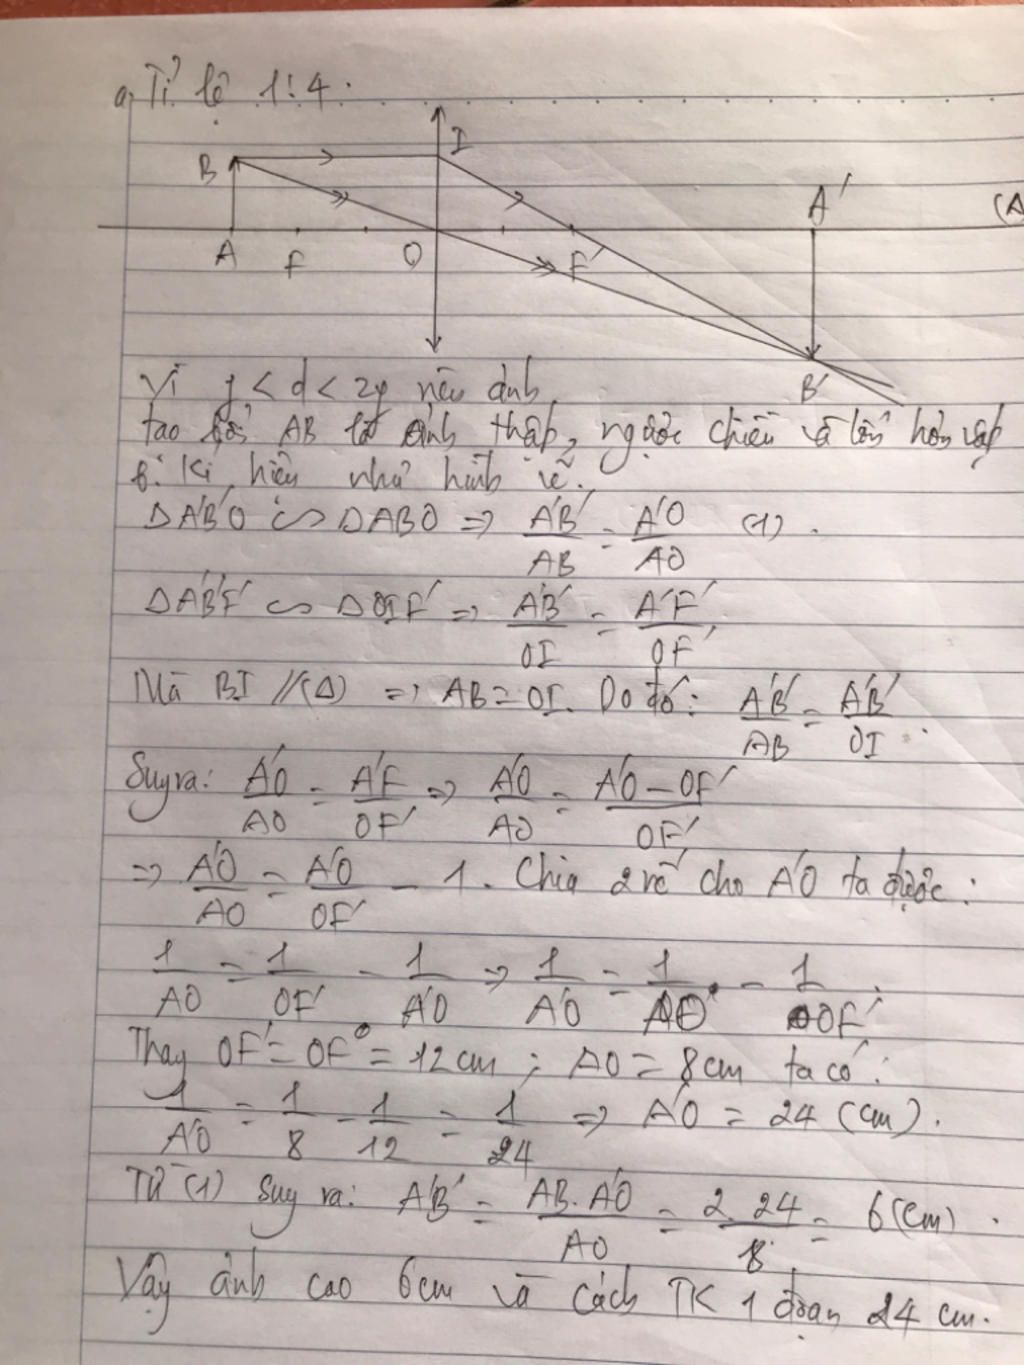 a, Tỉ lệ 1:4.
B I A' (A
A F O F' B'
Vì f < d < 2f nên ảnh
tạo bởi AB là ảnh thật, ngược chiều và lớn hơn vật
b. Kí hiệu như hình vẽ.
ΔA'B'O ∽ ΔABO => A'B'/AB = A'O/AO (1).
ΔA'B'F' ∽ ΔOIF' => A'B'/OI = A'F'/OF'
Mà BI //(Δ) => AB = OI. Do đó: A'B'/AB = A'B'/OI.
Suy ra: A'O/AO = A'F/OF' => A'O/AO = A'O - OF'/OF'
=> A'O/AO = A'O/OF' - 1. Chia 2 vế cho A'O ta được:
1/AO = 1/OF' - 1/A'O => 1/A'O = 1/AO - 1/OF'
Thay OF' = OF = 12 cm ; AO = 8cm ta có:
1/A'O = 1/8 - 1/12 = 1/24 => A'O = 24 (cm).
Từ (1) suy ra: A'B' = AB.A'O/AO = 2.24/8 = 6 (cm).
Vậy ảnh cao 6cm và cách TK 1 đoạn 24 cm.